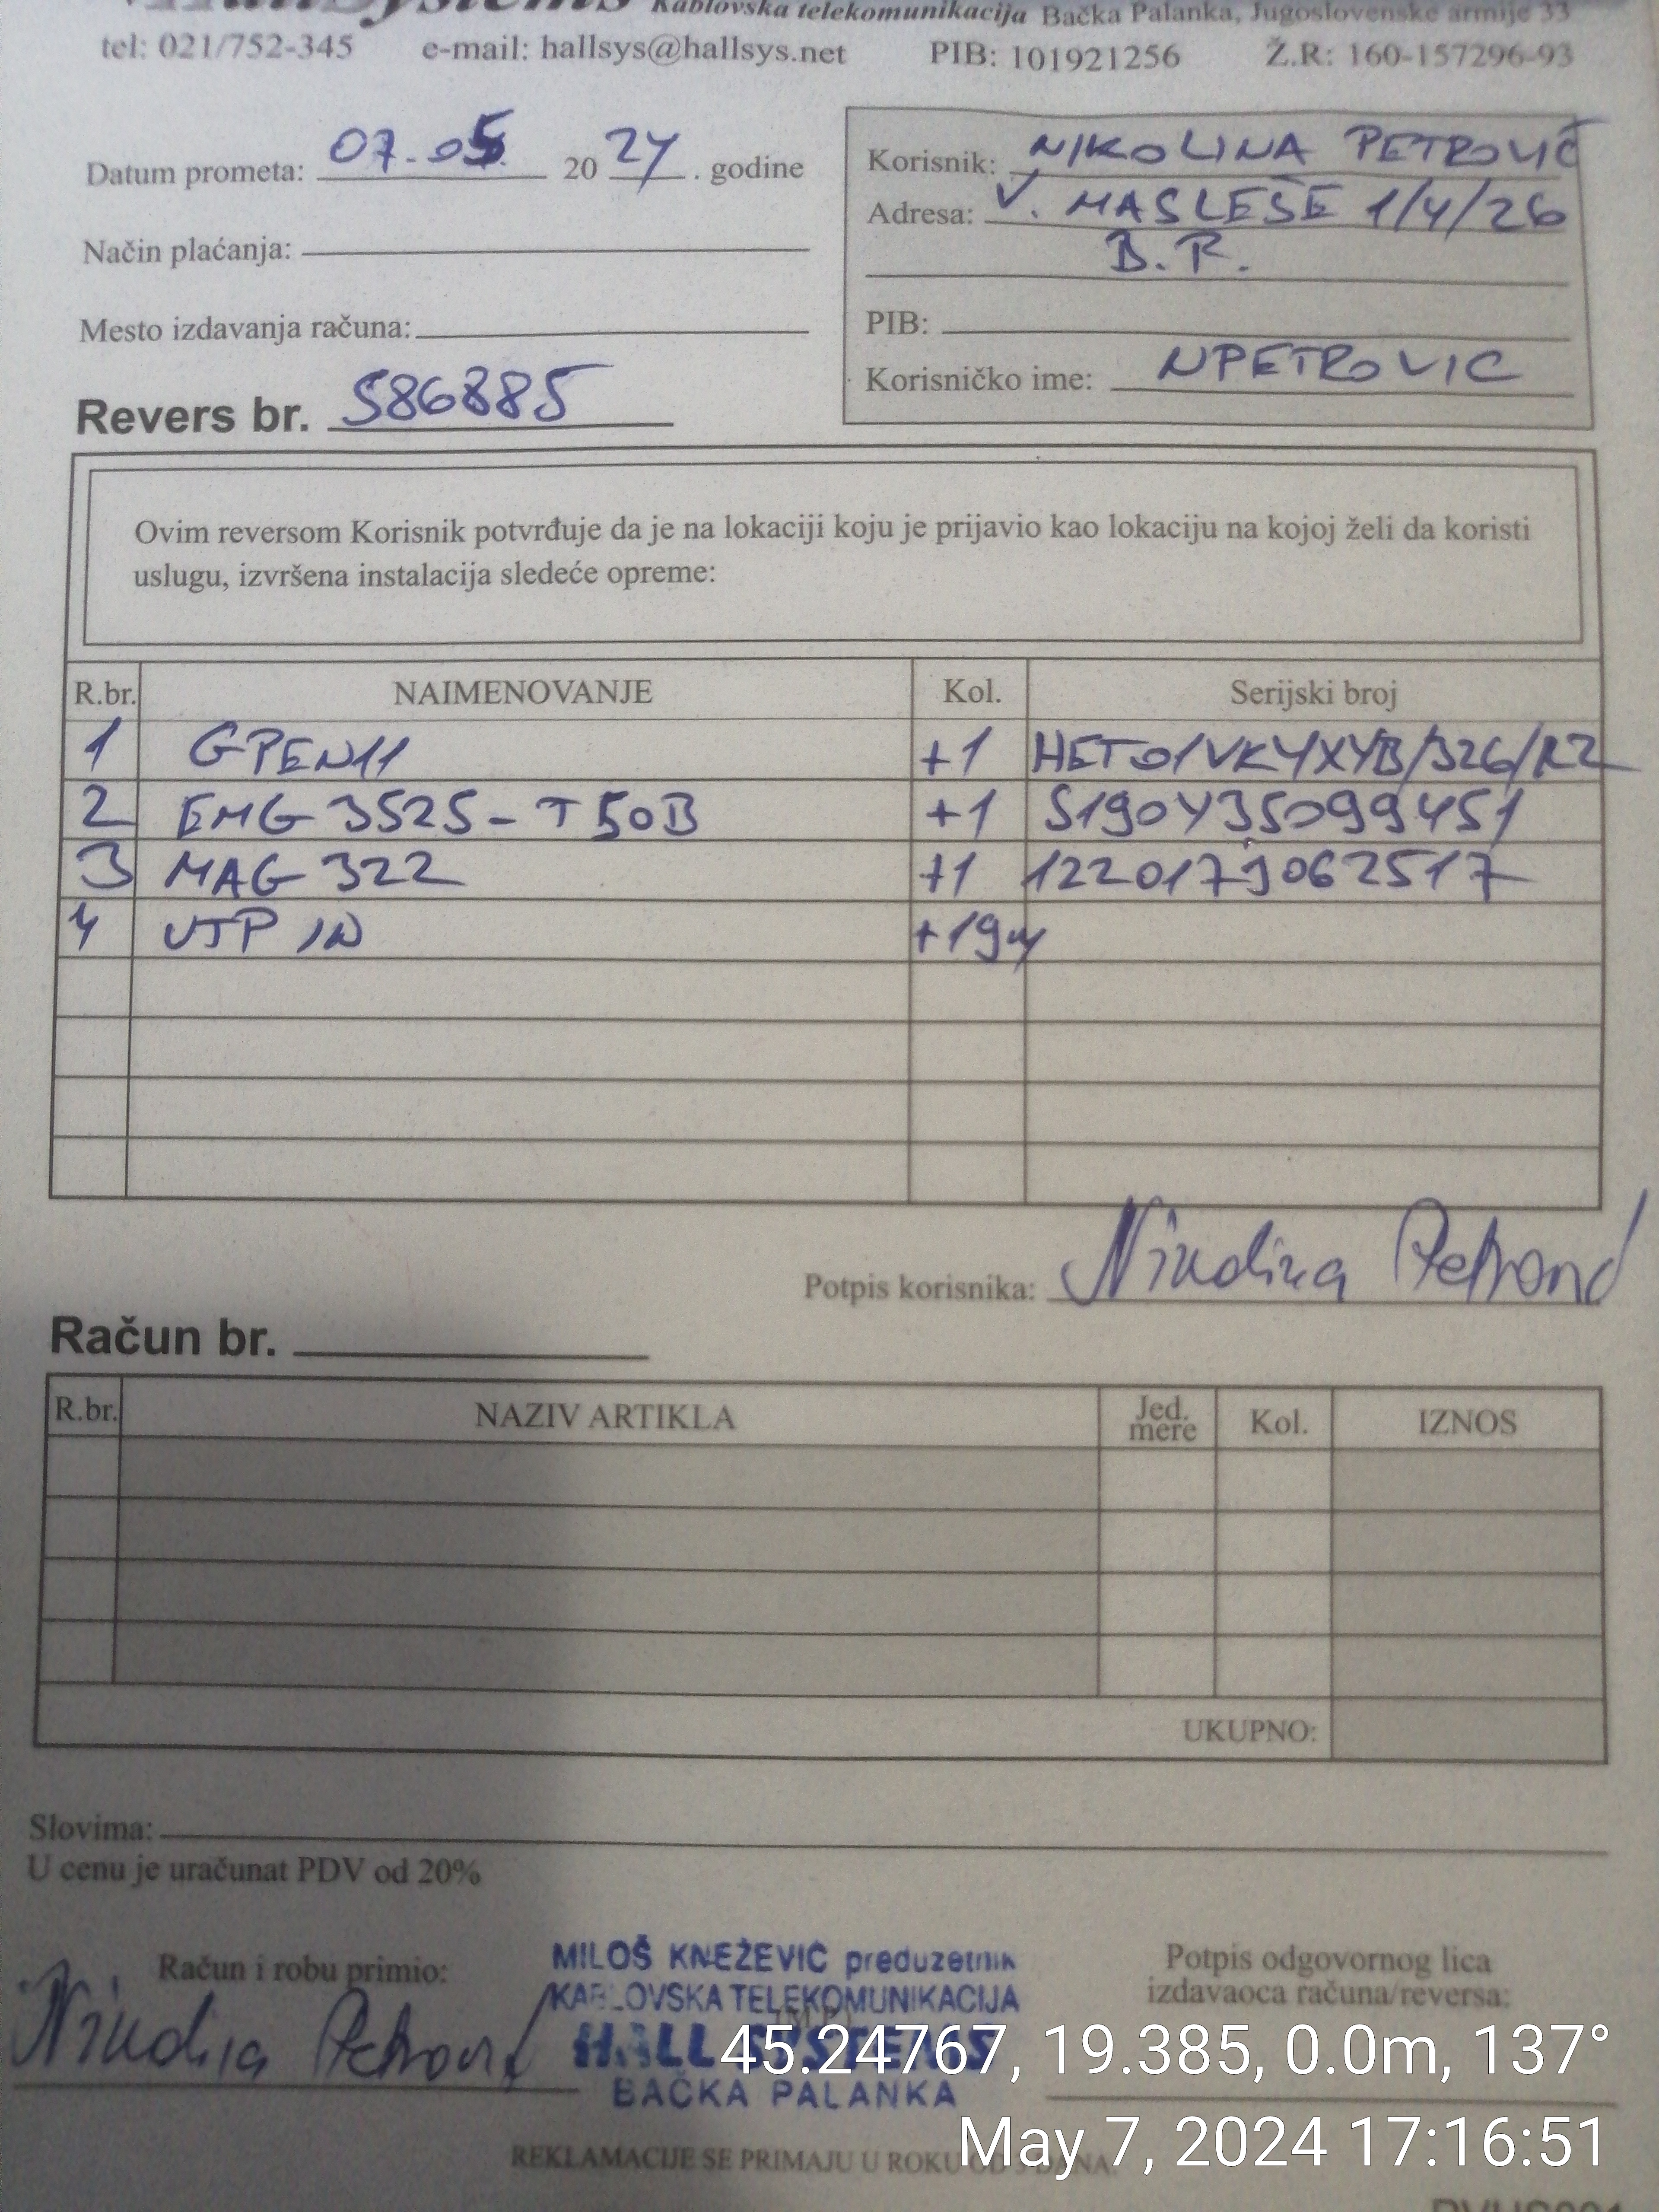 HallSystems Kablovska telekomunikacija Bačka Palanka, Jugoslovenske armije 33
tel: 021/752-345 e-mail: hallsys@hallsys.net PIB: 101921256 Ž.R: 160-157296-93
Datum prometa: 07.05. 2024. godine
Način plaćanja:
Mesto izdavanja računa:
Revers br. 586885
Korisnik: NIKOLINA PETROVIĆ
Adresa: V. MASLEŠE 1/4/26
B.P.
PIB:
Korisničko ime: NPETROVIC
Ovim reversom Korisnik potvrđuje da je na lokaciji koju je prijavio kao lokaciju na kojoj želi da koristi
uslugu, izvršena instalacija sledeće opreme:
R.br. NAIMENOVANJE Kol. Serijski broj
1 GPEN11 +1
2 EMG 3525-T50B +1 S190Y35099451
3 MAG 322 +1 122017J062517
4 UTP IN +19m
Potpis korisnika: Nikolina Petrović
Račun br.
R.br. NAZIV ARTIKLA Jed. mere Kol. IZNOS
UKUPNO:
Slovima:
U cenu je uračunat PDV od 20%
Račun i robu primio:
Nikolina Petrović
MILOŠ KNEŽEVIĆ preduzetnik
KABLOVSKA TELEKOMUNIKACIJA
HALL SYSTEMS
BAČKA PALANKA
Potpis odgovornog lica
izdavaoca računa/reversa:
45.24767, 19.385, 0.0m, 137°
May 7, 2024 17:16:51
REKLAMACIJE SE PRIMAJU U ROKU OD DANA.